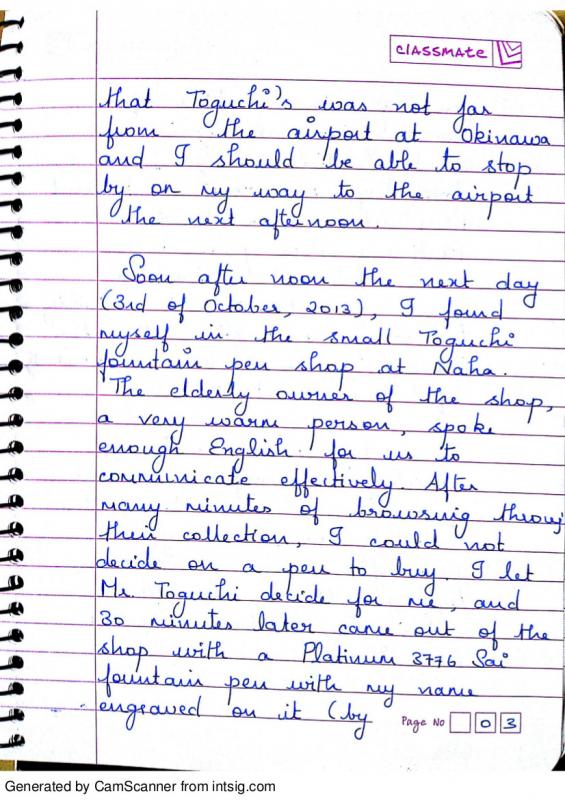 classmate
that Toguchi's was not far
from the airport at Okinawa
and I should be able to stop
by on my way to the airport
the next afternoon.
Soon after noon the next day
(3rd of October, 2013), I found
myself in the small Toguchi
fountain pen shop at Naha.
The elderly owner of the shop,
a very warm person, spoke
enough English for us to
communicate effectively. After
many minutes of browsing throug
their collection, I could not
decide on a pen to buy. I let
Mr. Toguchi decide for me, and
30 minutes later came out of the
shop with a Platinum 3776 Sai
fountain pen with my name
engraved on it (by
Page No 03
Generated by CamScanner from intsig.com